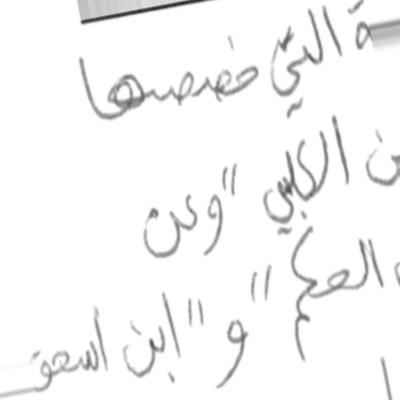 التي خصصها
الكلبي "وعن
الحكم" و"ابن اسحق